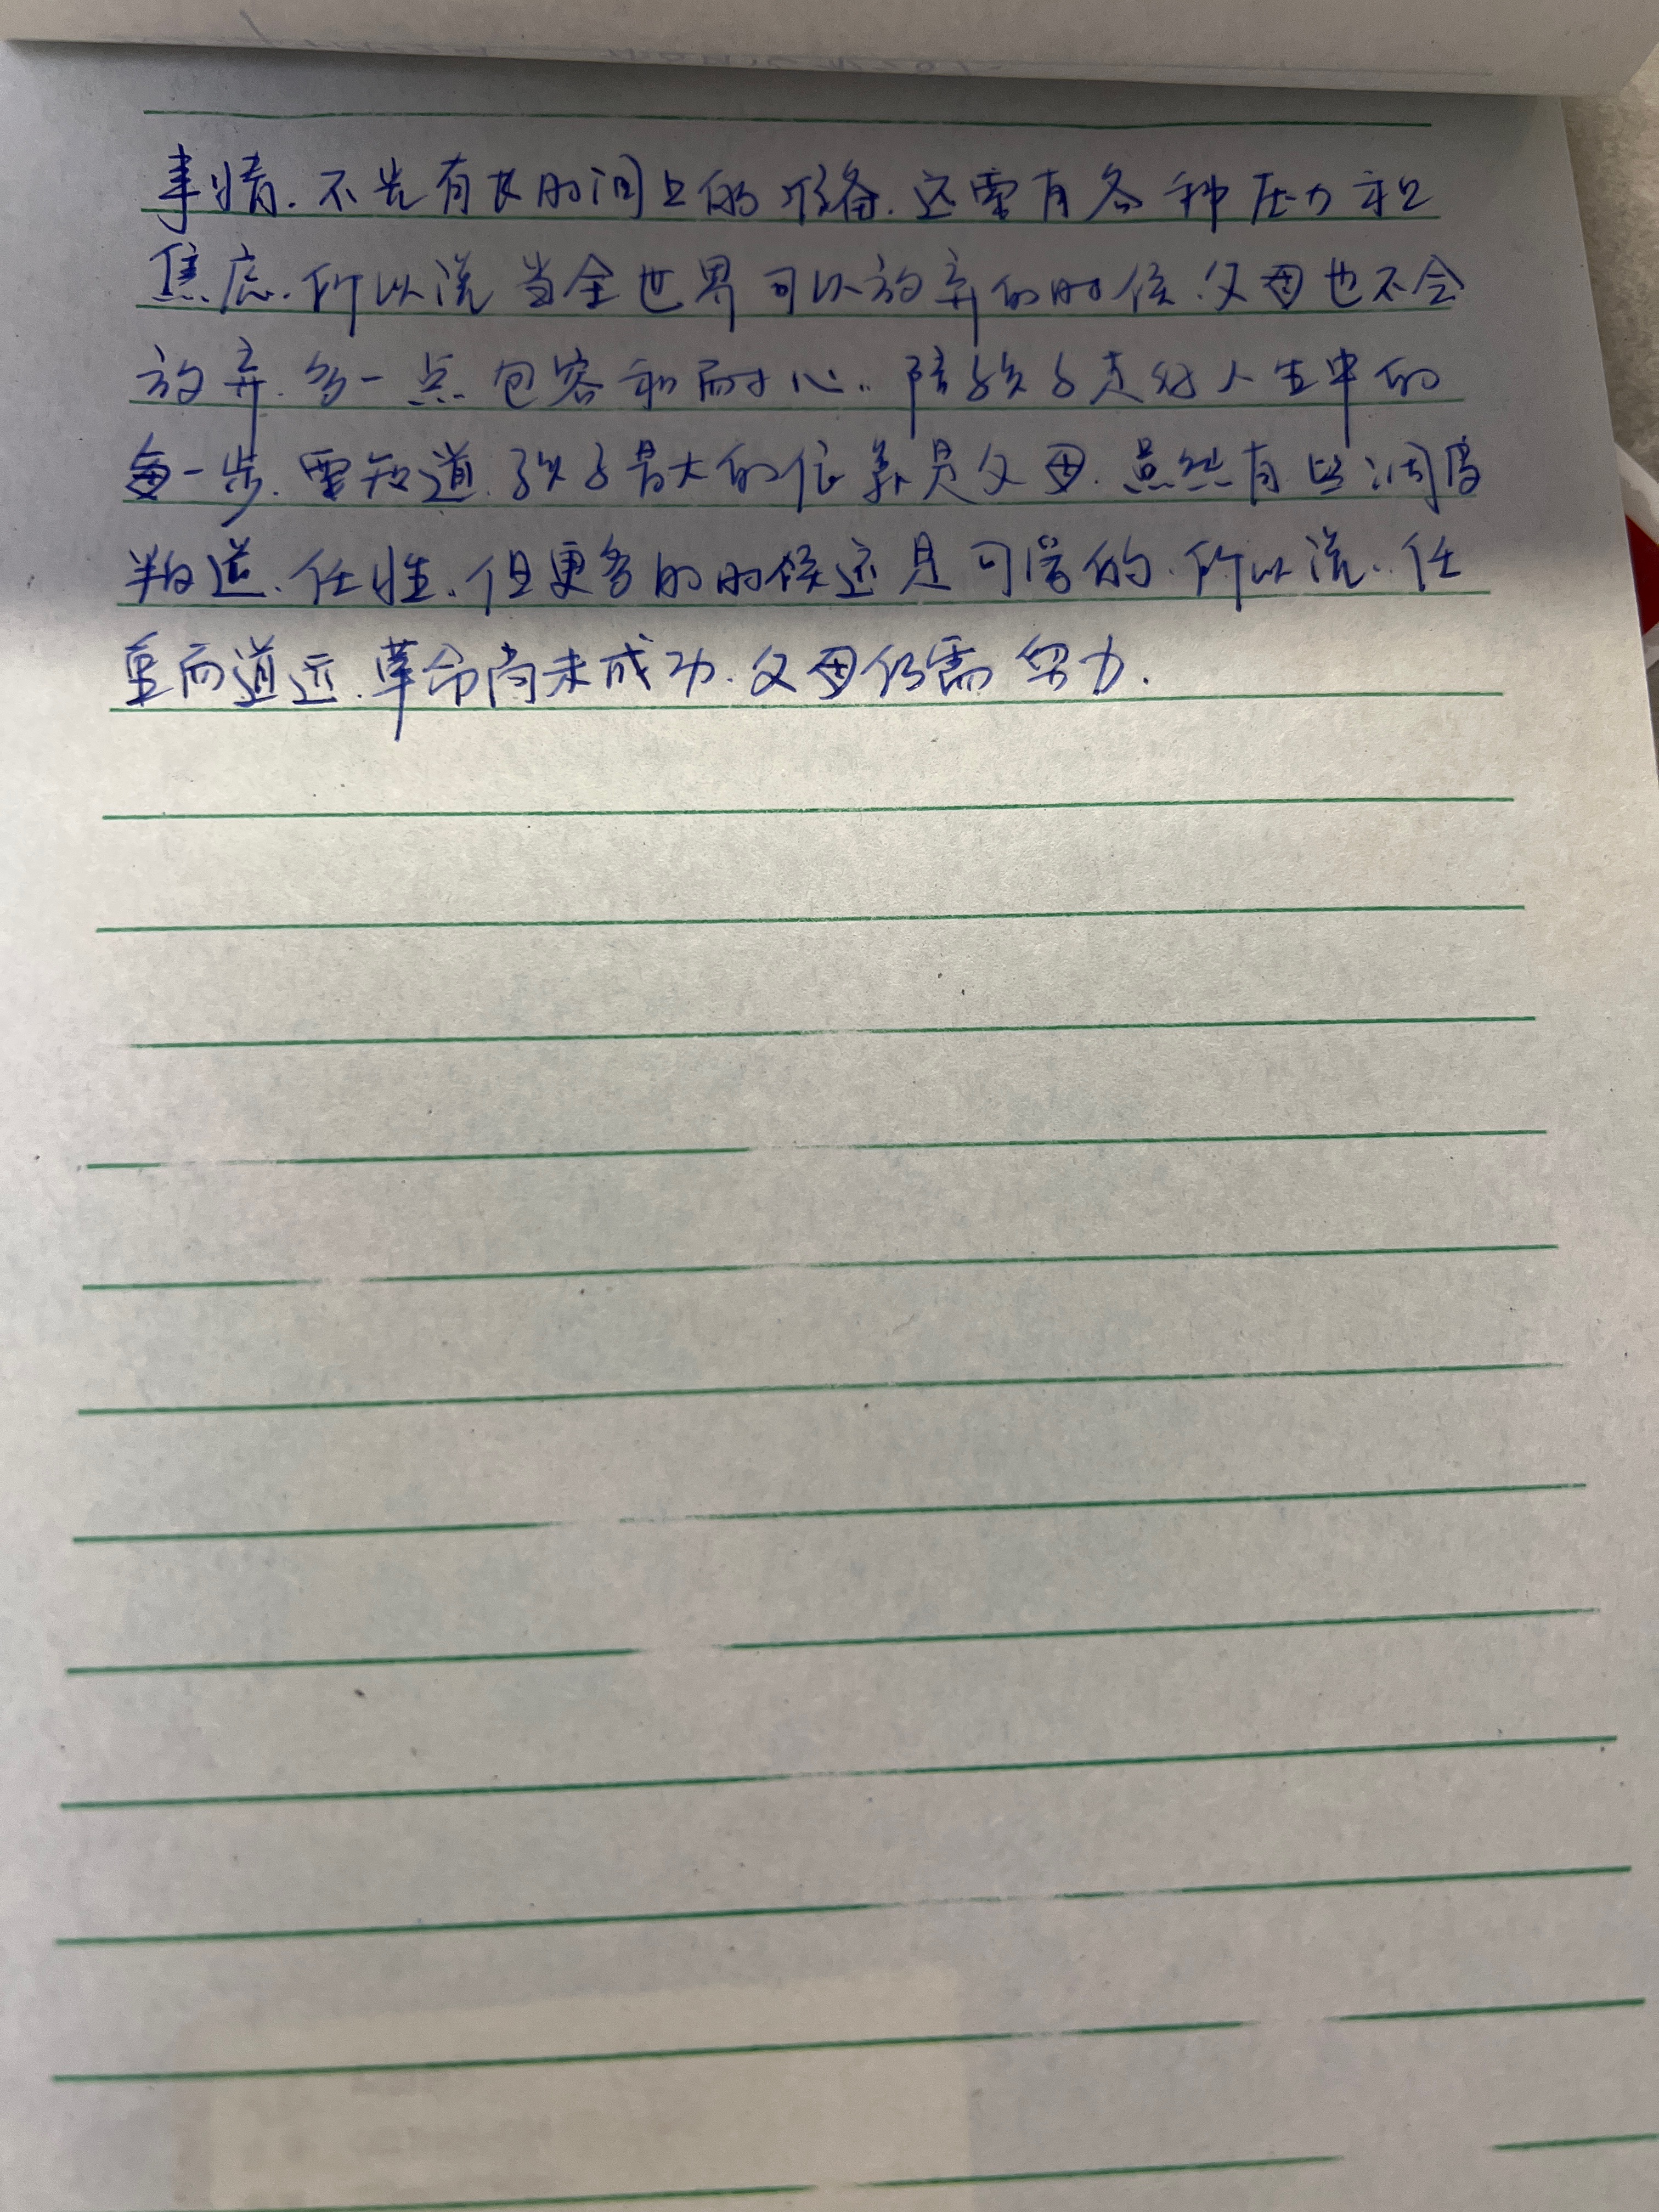 事情.不光有长时间上的准备.还需有各种压力和
焦虑.所以说当全世界可以放弃的时候.父母也不会
放弃.多一点包容和耐心..陪孩子走好人生中的
每一步.要知道.孩子最大的依靠是父母.虽然有些
叛逆.任性.但更多的时候还是可爱的.所以说..任
重而道远.革命尚未成功.父母仍需努力.